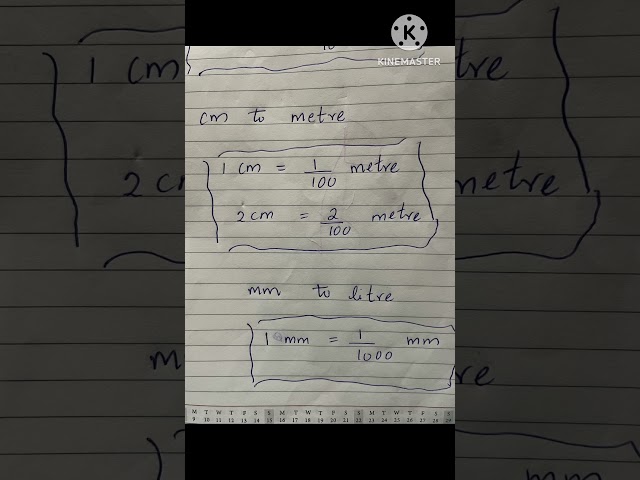 KINEMASTER
1 cm
tre
cm to metre
1 cm = 1/100 metre
2 cm = 2/100 metre
2 c
metre
mm to litre
1 mm = 1/1000 mm
m
re
M T W T F S S M T W T F S S M T W T F S S
9 10 11 12 13 14 15 16 17 18 19 20 21 22 23 24 25 26 27 28 29
mm